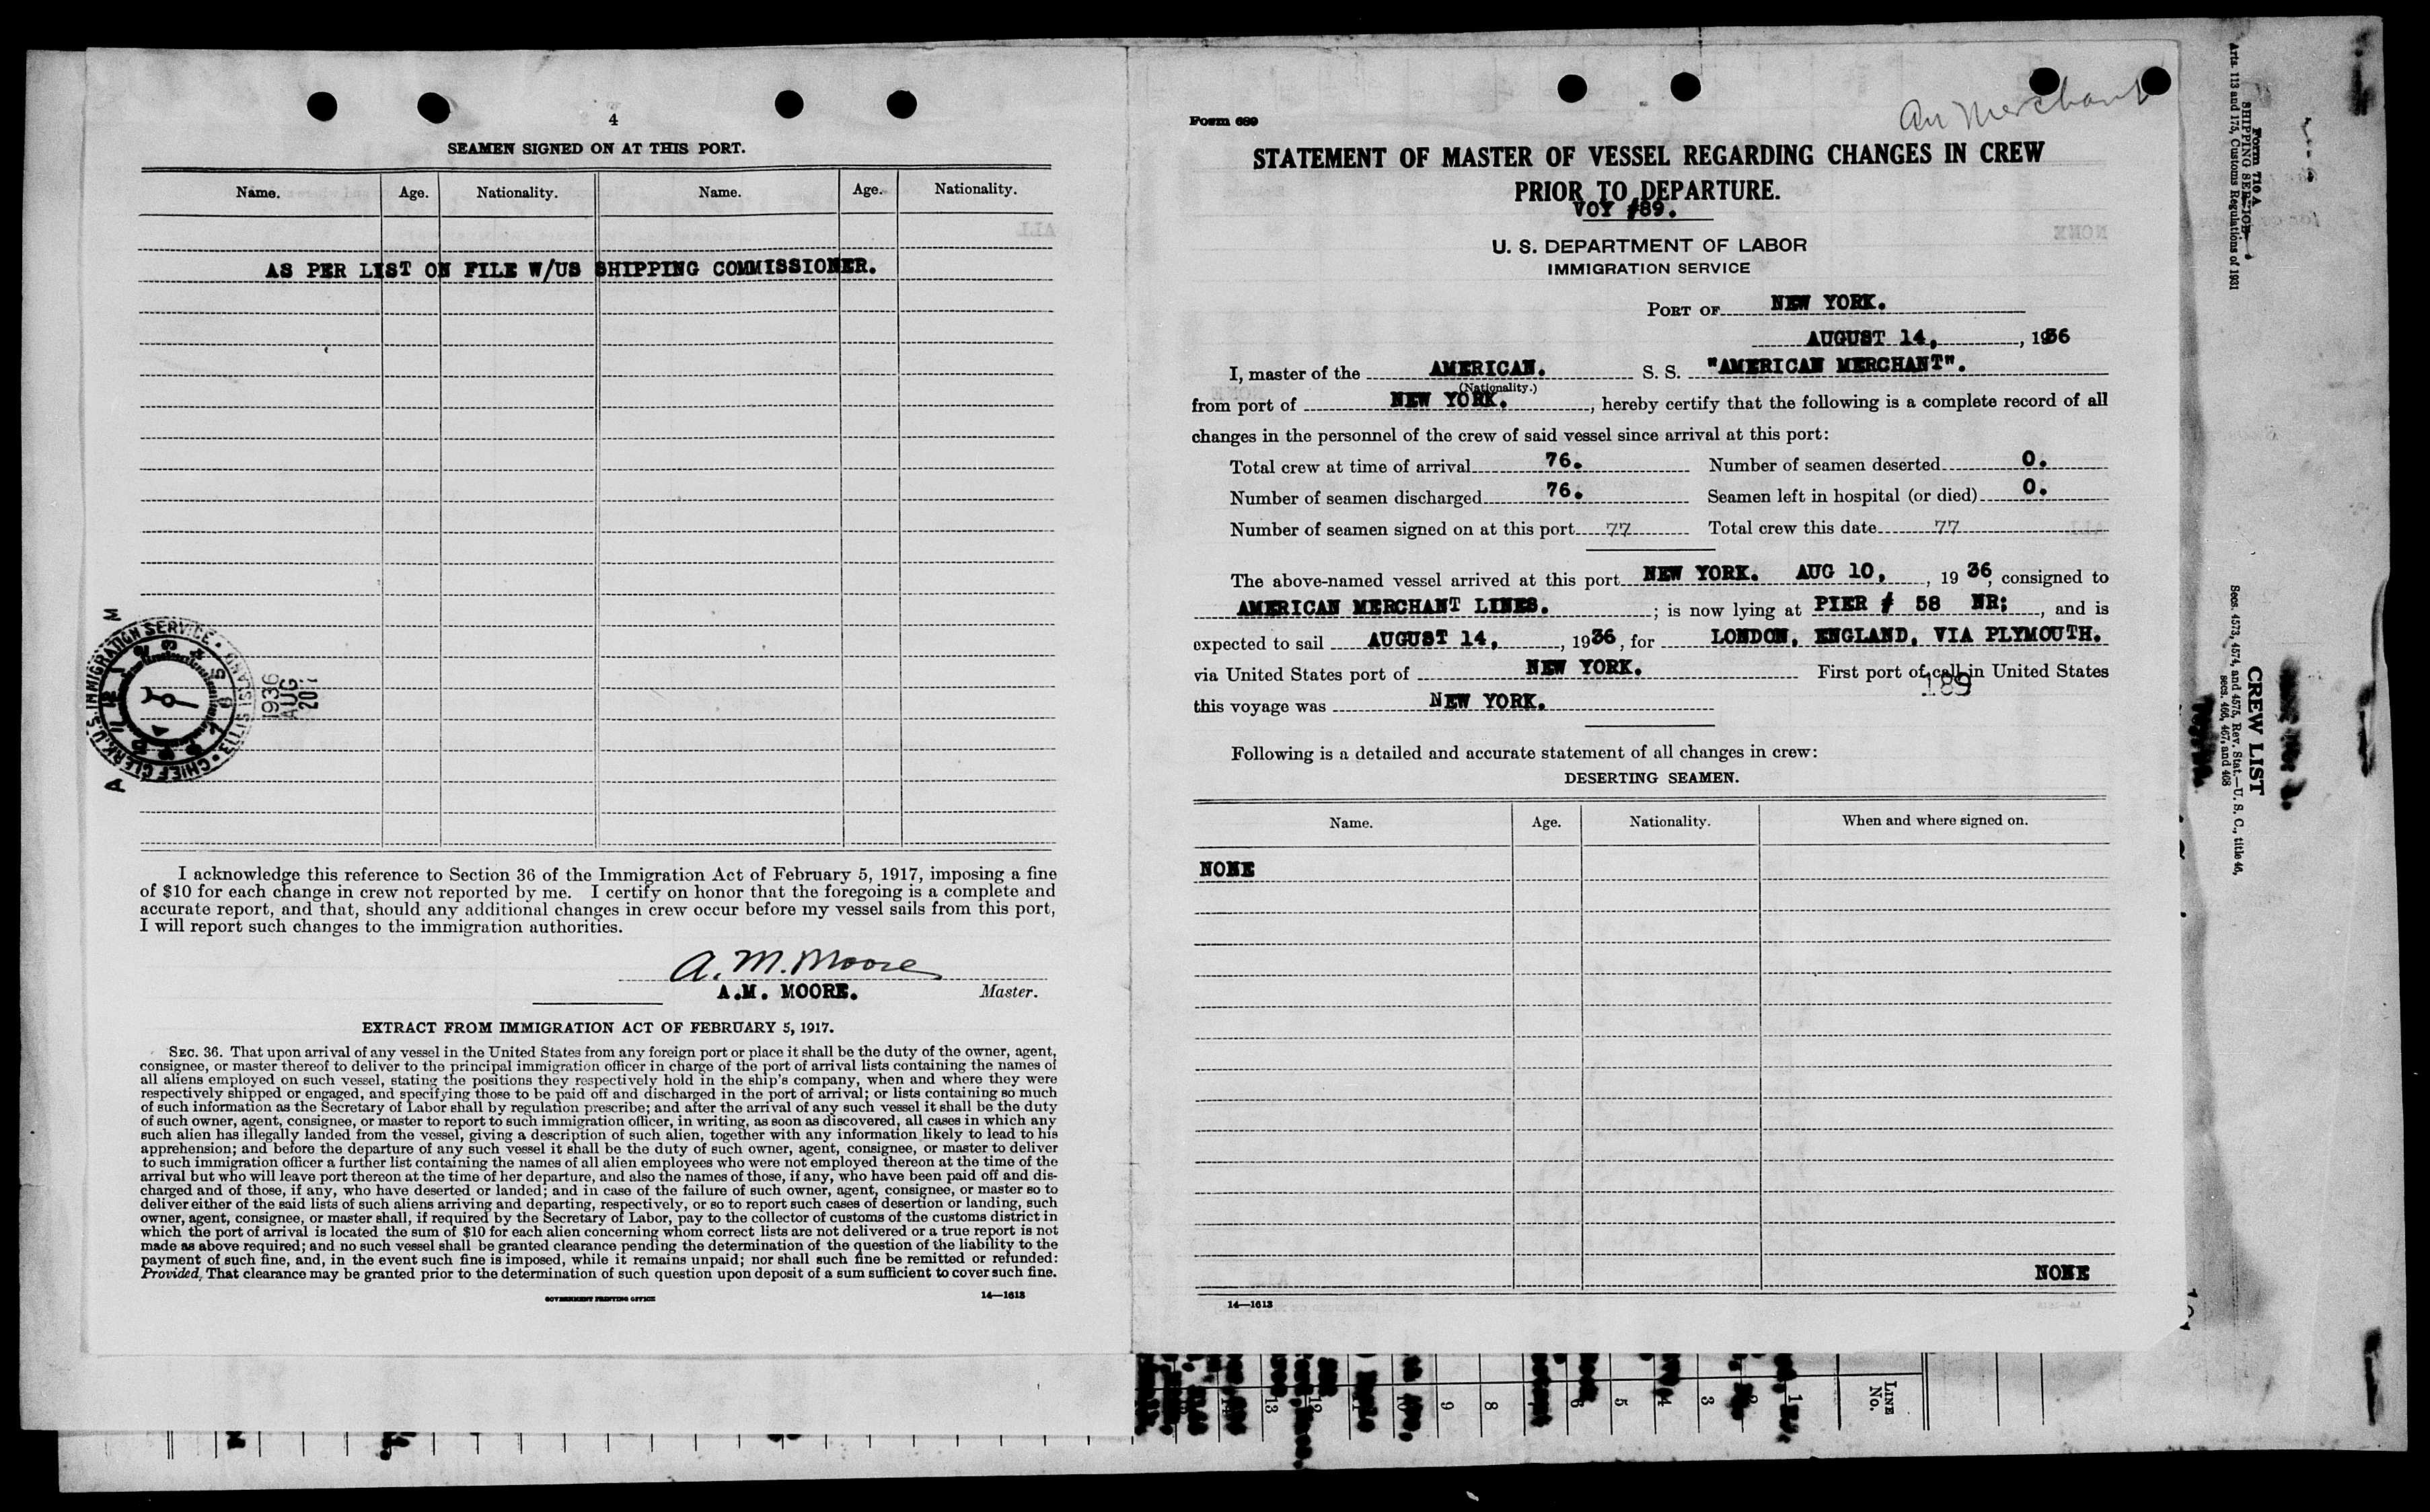 4
SEAMEN SIGNED ON AT THIS PORT.
Name. Age. Nationality. Name. Age. Nationality.
AS PER LIST ON FILE W/US SHIPPING COMMISSIONER.
I acknowledge this reference to Section 36 of the Immigration Act of February 5, 1917, imposing a fine
of $10 for each change in crew not reported by me. I certify on honor that the foregoing is a complete and
accurate report, and that, should any additional changes in crew occur before my vessel sails from this port,
I will report such changes to the immigration authorities.
A. M. Moore
A.M. MOORE. Master.
EXTRACT FROM IMMIGRATION ACT OF FEBRUARY 5, 1917.
SEC. 36. That upon arrival of any vessel in the United States from any foreign port or place it shall be the duty of the owner, agent,
consignee, or master thereof to deliver to the principal immigration officer in charge of the port of arrival lists containing the names of
all aliens employed on such vessel, stating the positions they respectively hold in the ship's company, when and where they were
respectively shipped or engaged, and specifying those to be paid off and discharged in the port of arrival; or lists containing so much
of such information as the Secretary of Labor shall by regulation prescribe; and after the arrival of any such vessel it shall be the duty
of such owner, agent, consignee, or master to report to such immigration officer, in writing, as soon as discovered, all cases in which any
such alien has illegally landed from the vessel, giving a description of such alien, together with any information likely to lead to his
apprehension; and before the departure of any such vessel it shall be the duty of such owner, agent, consignee, or master to deliver
to such immigration officer a further list containing the names of all alien employees who were not employed thereon at the time of the
arrival but who will leave port thereon at the time of her departure, and also the names of those, if any, who have been paid off and dis-
charged and of those, if any, who have deserted or landed; and in case of the failure of such owner, agent, consignee, or master so to
deliver either of the said lists of such aliens arriving and departing, respectively, or so to report such cases of desertion or landing, such
owner, agent, consignee, or master shall, if required by the Secretary of Labor, pay to the collector of customs of the customs district in
which the port of arrival is located the sum of $10 for each alien concerning whom correct lists are not delivered or a true report is not
made as above required; and no such vessel shall be granted clearance pending the determination of the question of the liability to the
payment of such fine, and, in the event such fine is imposed, while it remains unpaid; nor shall such fine be remitted or refunded:
Provided, That clearance may be granted prior to the determination of such question upon deposit of a sum sufficient to cover such fine.
GOVERNMENT PRINTING OFFICE 14—1613
U.S. IMMIGRATION SERVICE · ELLIS ISLAND · CHIEF CLERK
1936
AUG
20
An Merchant
Form 689
STATEMENT OF MASTER OF VESSEL REGARDING CHANGES IN CREW
PRIOR TO DEPARTURE.
VOY #89.
U. S. DEPARTMENT OF LABOR
IMMIGRATION SERVICE
PORT OF NEW YORK.
AUGUST 14, , 1936
I, master of the AMERICAN. S. S. "AMERICAN MERCHANT".
(Nationality.)
from port of NEW YORK. , hereby certify that the following is a complete record of all
changes in the personnel of the crew of said vessel since arrival at this port:
Total crew at time of arrival 76. Number of seamen deserted 0.
Number of seamen discharged 76. Seamen left in hospital (or died) 0.
Number of seamen signed on at this port 77 Total crew this date 77
The above-named vessel arrived at this port NEW YORK. AUG 10, , 19 36, consigned to
AMERICAN MERCHANT LINES. ; is now lying at PIER # 58 NR; , and is
expected to sail AUGUST 14, , 1936 , for LONDON, ENGLAND, VIA PLYMOUTH.
via United States port of NEW YORK. First port of call in United States
189
this voyage was NEW YORK.
Following is a detailed and accurate statement of all changes in crew:
DESERTING SEAMEN.
Name. Age. Nationality. When and where signed on.
NONE
NONE
14—1613
Form 710 A
SHIPPING SERVICE
Arts. 113 and 175, Customs Regulations of 1931
CREW LIST
Secs. 4573, 4574, and 4575, Rev. Stat.—U. S. C., title 46,
secs. 466, 467, and 468
LINE
No.
1
2
3
4
5
6
8
9
13